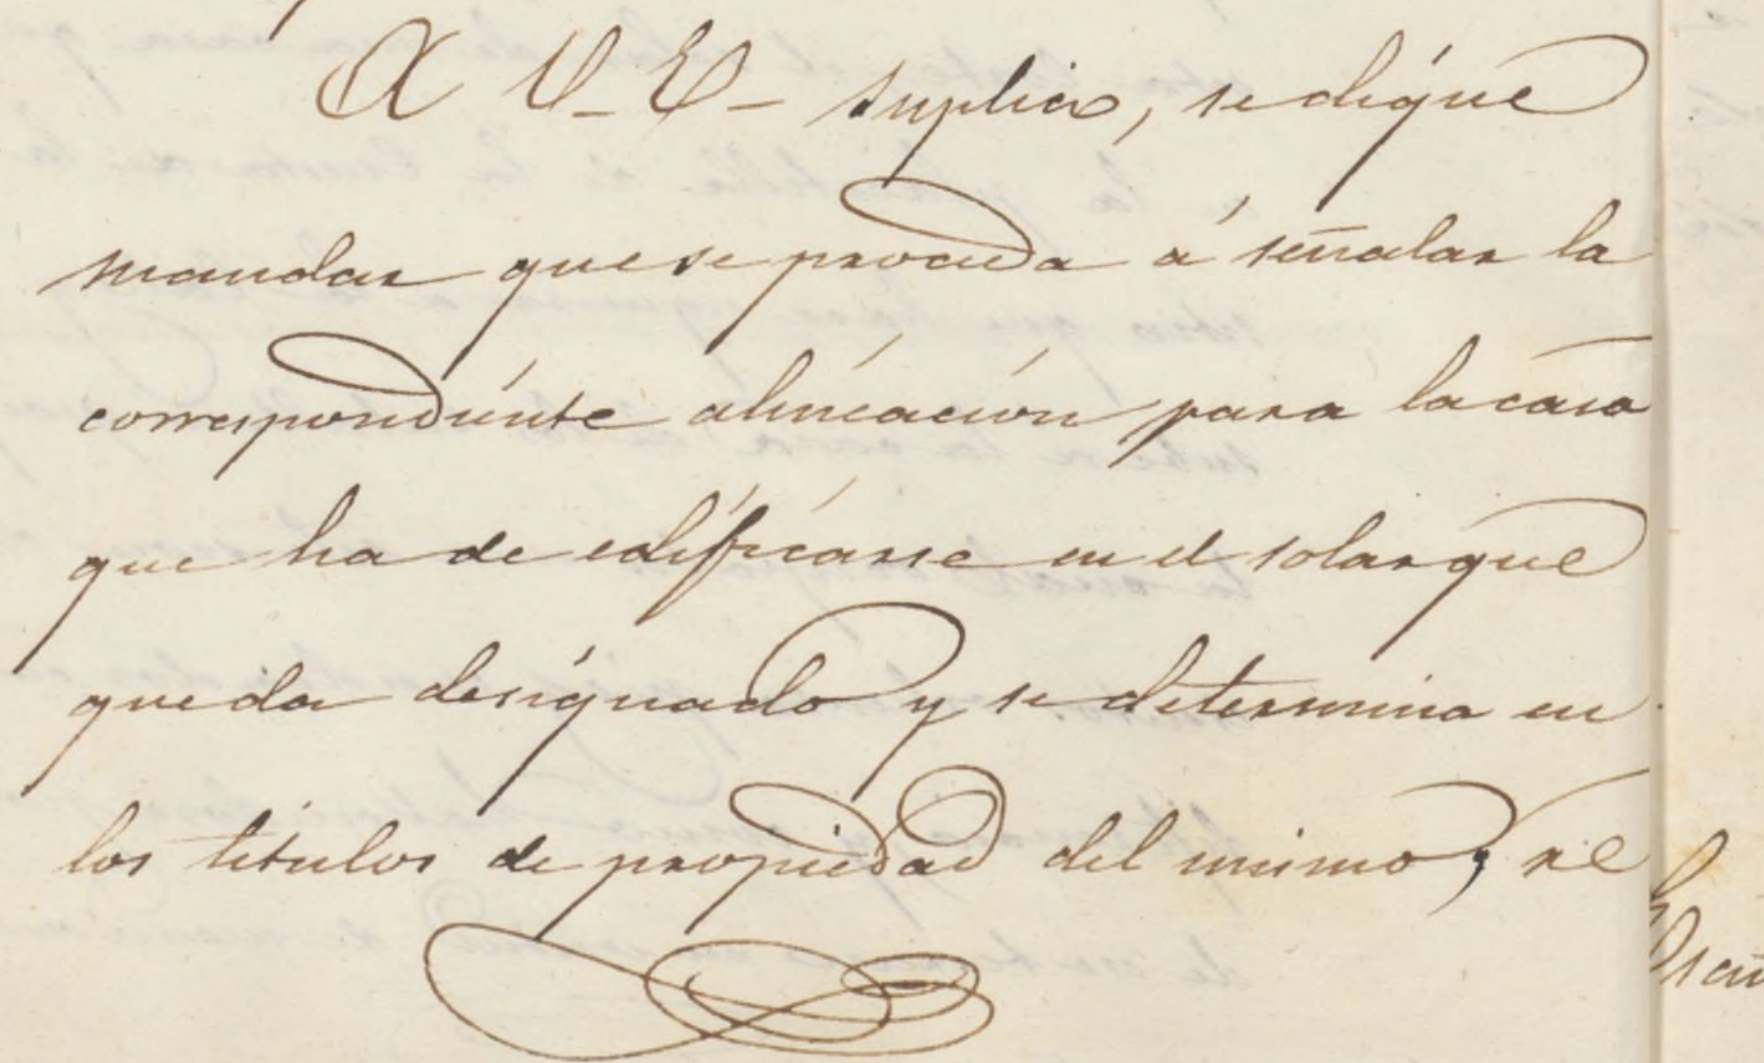 A V. E. suplico, se dígne
mandar que se proceda á señalar la
correspondiente alineación para la casa
que ha de edificarse en el solar que
queda designado y se determina en
los titulos de propiedad del mismo, re